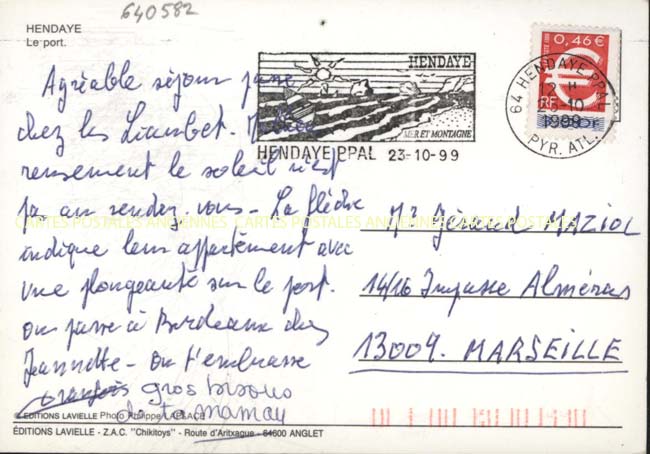 640582
HENDAYE
Le port.
Agréable séjour passé
chez les Lambet.
reusement le soleil n'est
pas au rendez-vous - La flèche
indique leur appartement avec
vue plongeante sur le port.
on passe à Bordeaux chez
Jeannette - on t'embrasse
gros bisous
de ta maman
HENDAYE
MER ET MONTAGNE
HENDAYE PPAL 23-10-99
0,46 €
RF
64 HENDAYE PPAL
1999
PYR. ATL.
CARTES POSTALES ANCIENNES CARTES POSTALES ANCIENNES CARTES POSTALES
Mr Gérard MAZIOL
14/16 Impasse Alméras
13009. MARSEILLE
© EDITIONS LAVIELLE Photo Philippe LAPLACE
ÉDITIONS LAVIELLE - Z.A.C. "Chikitoys" - Route d'Aritxague - 64600 ANGLET